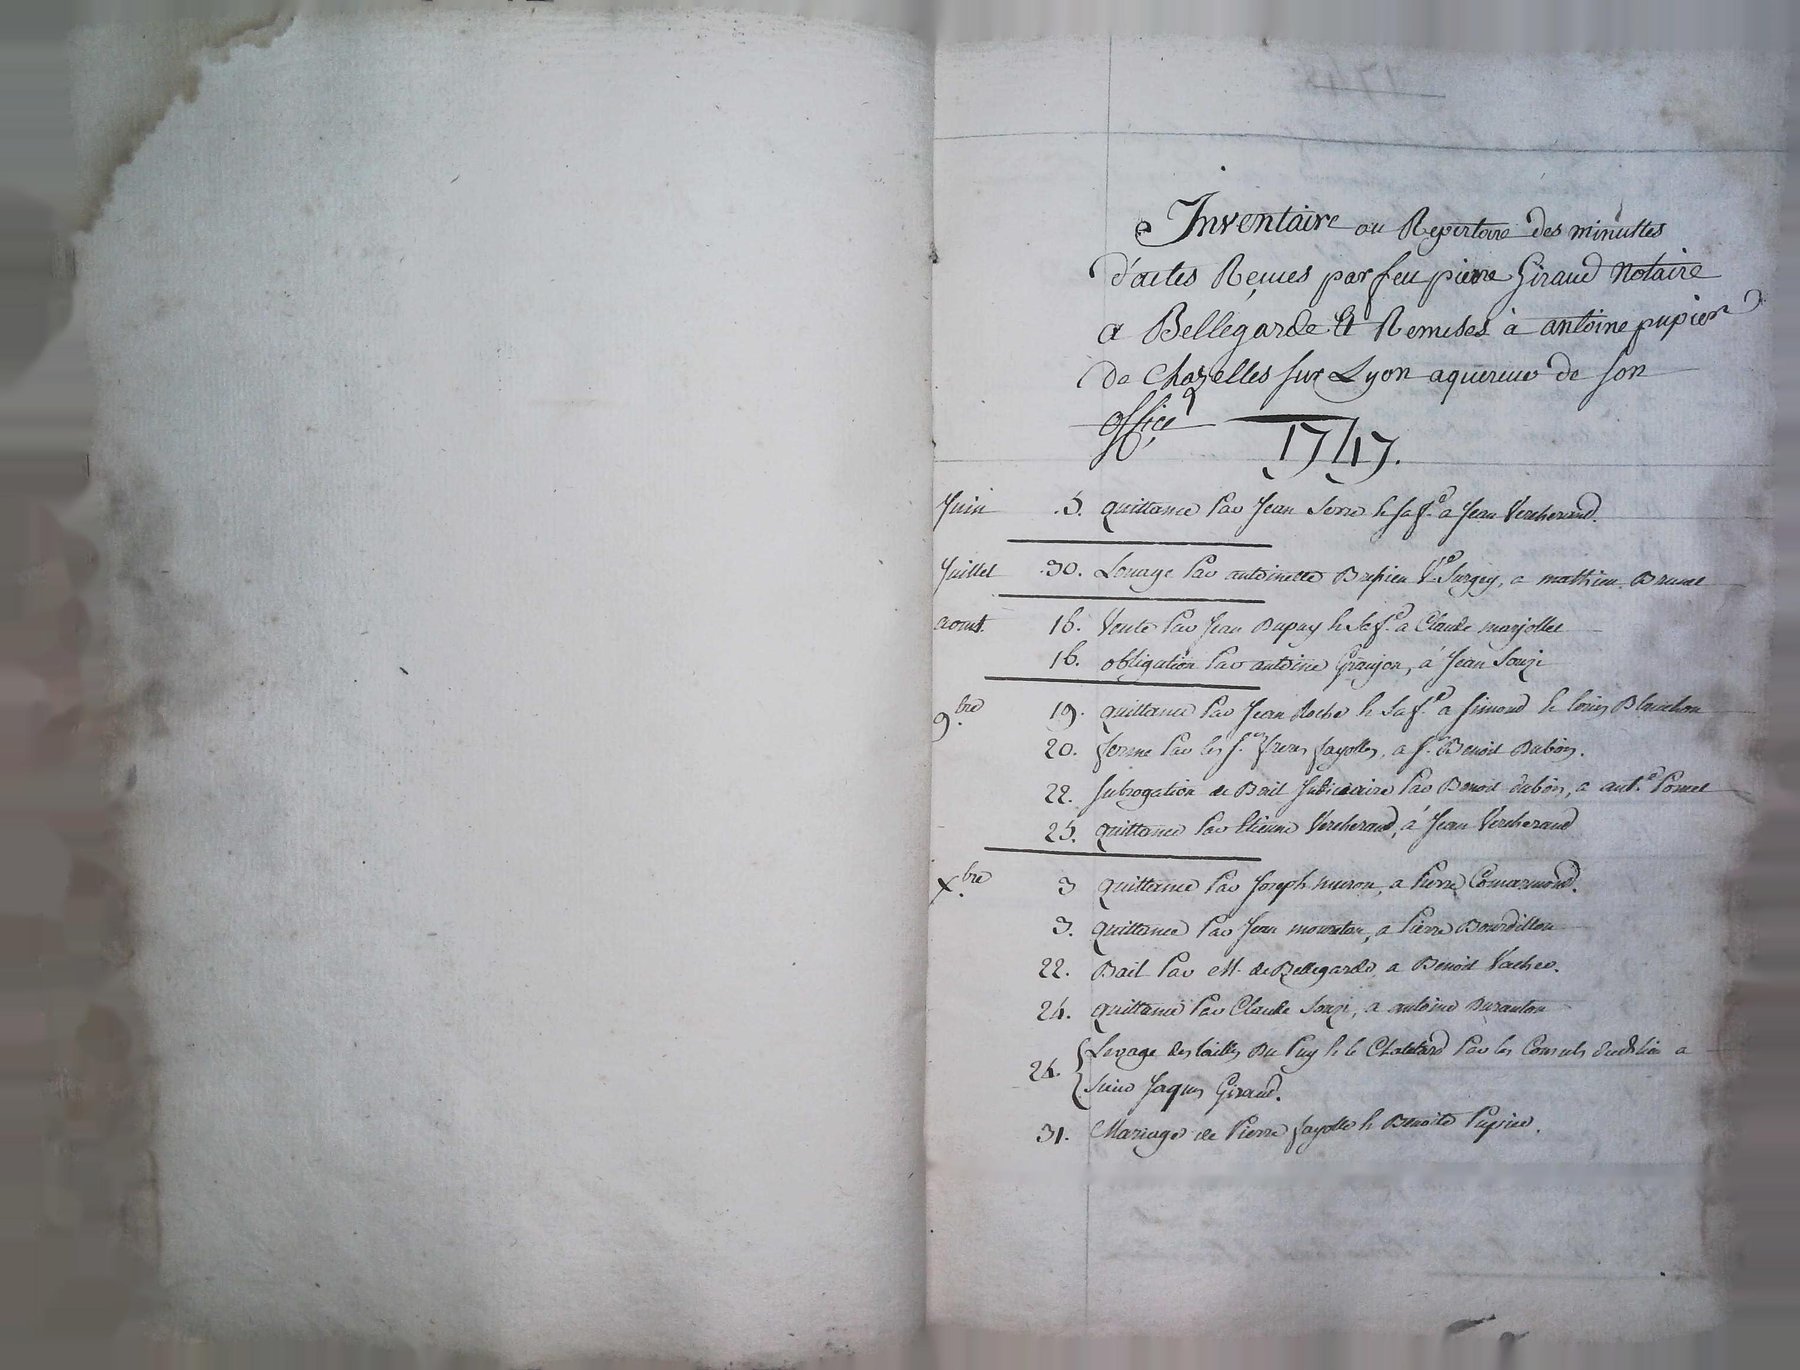 Inventaire ou Repertoire des minuttes
d'actes Reçues par feu pierre Giraud Notaire
a Bellegarde Et Remises à antoine pupier
de Chazelles sur Lyon aquereur de son
office
1747.
Juin 5. quittance Par Jean Serre & sa f.e a Jean Vercherand.
Juillet 30. Louage Par antoinette Brepieu V.e Surgey, a mathieu Brunel
aoust. 16. Vente Par Jean Dupuy & sa f.e a Claude marjollet
16. obligation Par antoine Granjon, à Jean Souzi
9.bre 19. quittance Par Jean Roche & sa f.e a simond & louis Blanchon
20. ferme Par les s.rs freres fayolles, a s.r Benoit Dubois.
22. subrogation de Bail Judiciaire Par Benoit dubois, a ant.e Poncet
25. quittance Par Etienne Vercherand, à Jean Vercherand
X.bre 3 quittance Par Joseph muron, a Pierre Comarmond.
3. quittance Par Jean mouton, a Pierre Bourdillon
22. Bail Par M. de Bellegarde, a Benoit Vacher.
24. quittance Par Claude Souzi, a antoine Duranton
24. Levage des tailles Du Puy & le Chatelard Par les Consuls dud. lieu a
sieur Jaques Giraud.
31. Mariage de Pierre fayolle & Benoite Pupier.